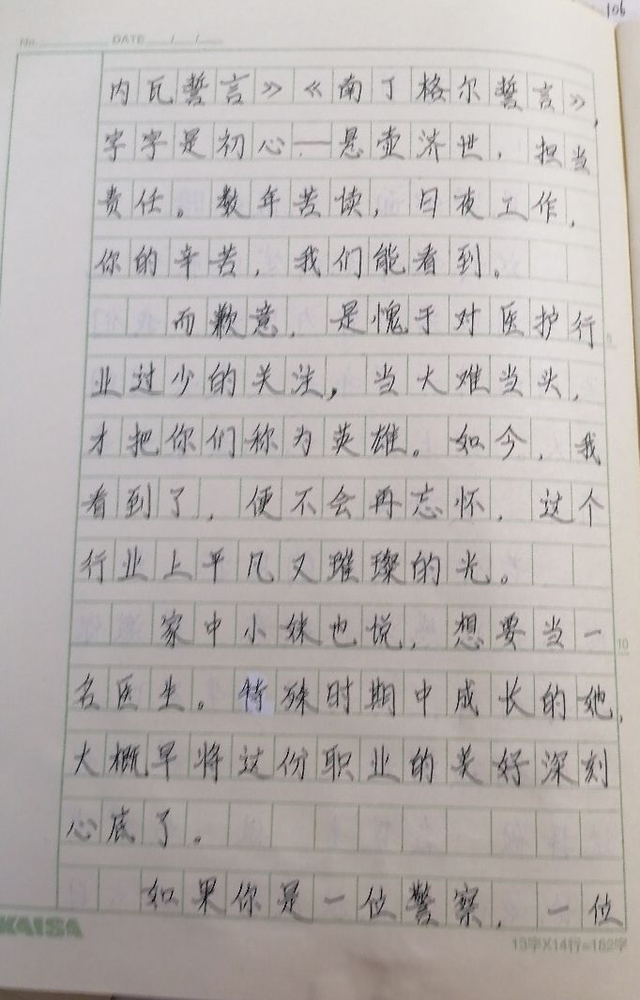 106
No. DATE / /
内瓦誓言》《南丁格尔誓言》,
字字是初心——悬壶济世，担当
责任。数年苦读，日夜工作，
你的辛苦，我们能看到。
而歉意，是愧于对医护行
业过少的关注，当大难当头，
才把你们称为英雄。如今，我
看到了，便不会再忘怀，这个
行业上平凡又璀璨的光。
家中小妹也说，想要当一
名医生。特殊时期中成长的她，
大概早将这份职业的美好深刻
心底了。
如果你是一位警察，一位
5
10
KAISA
13字X14行=182字